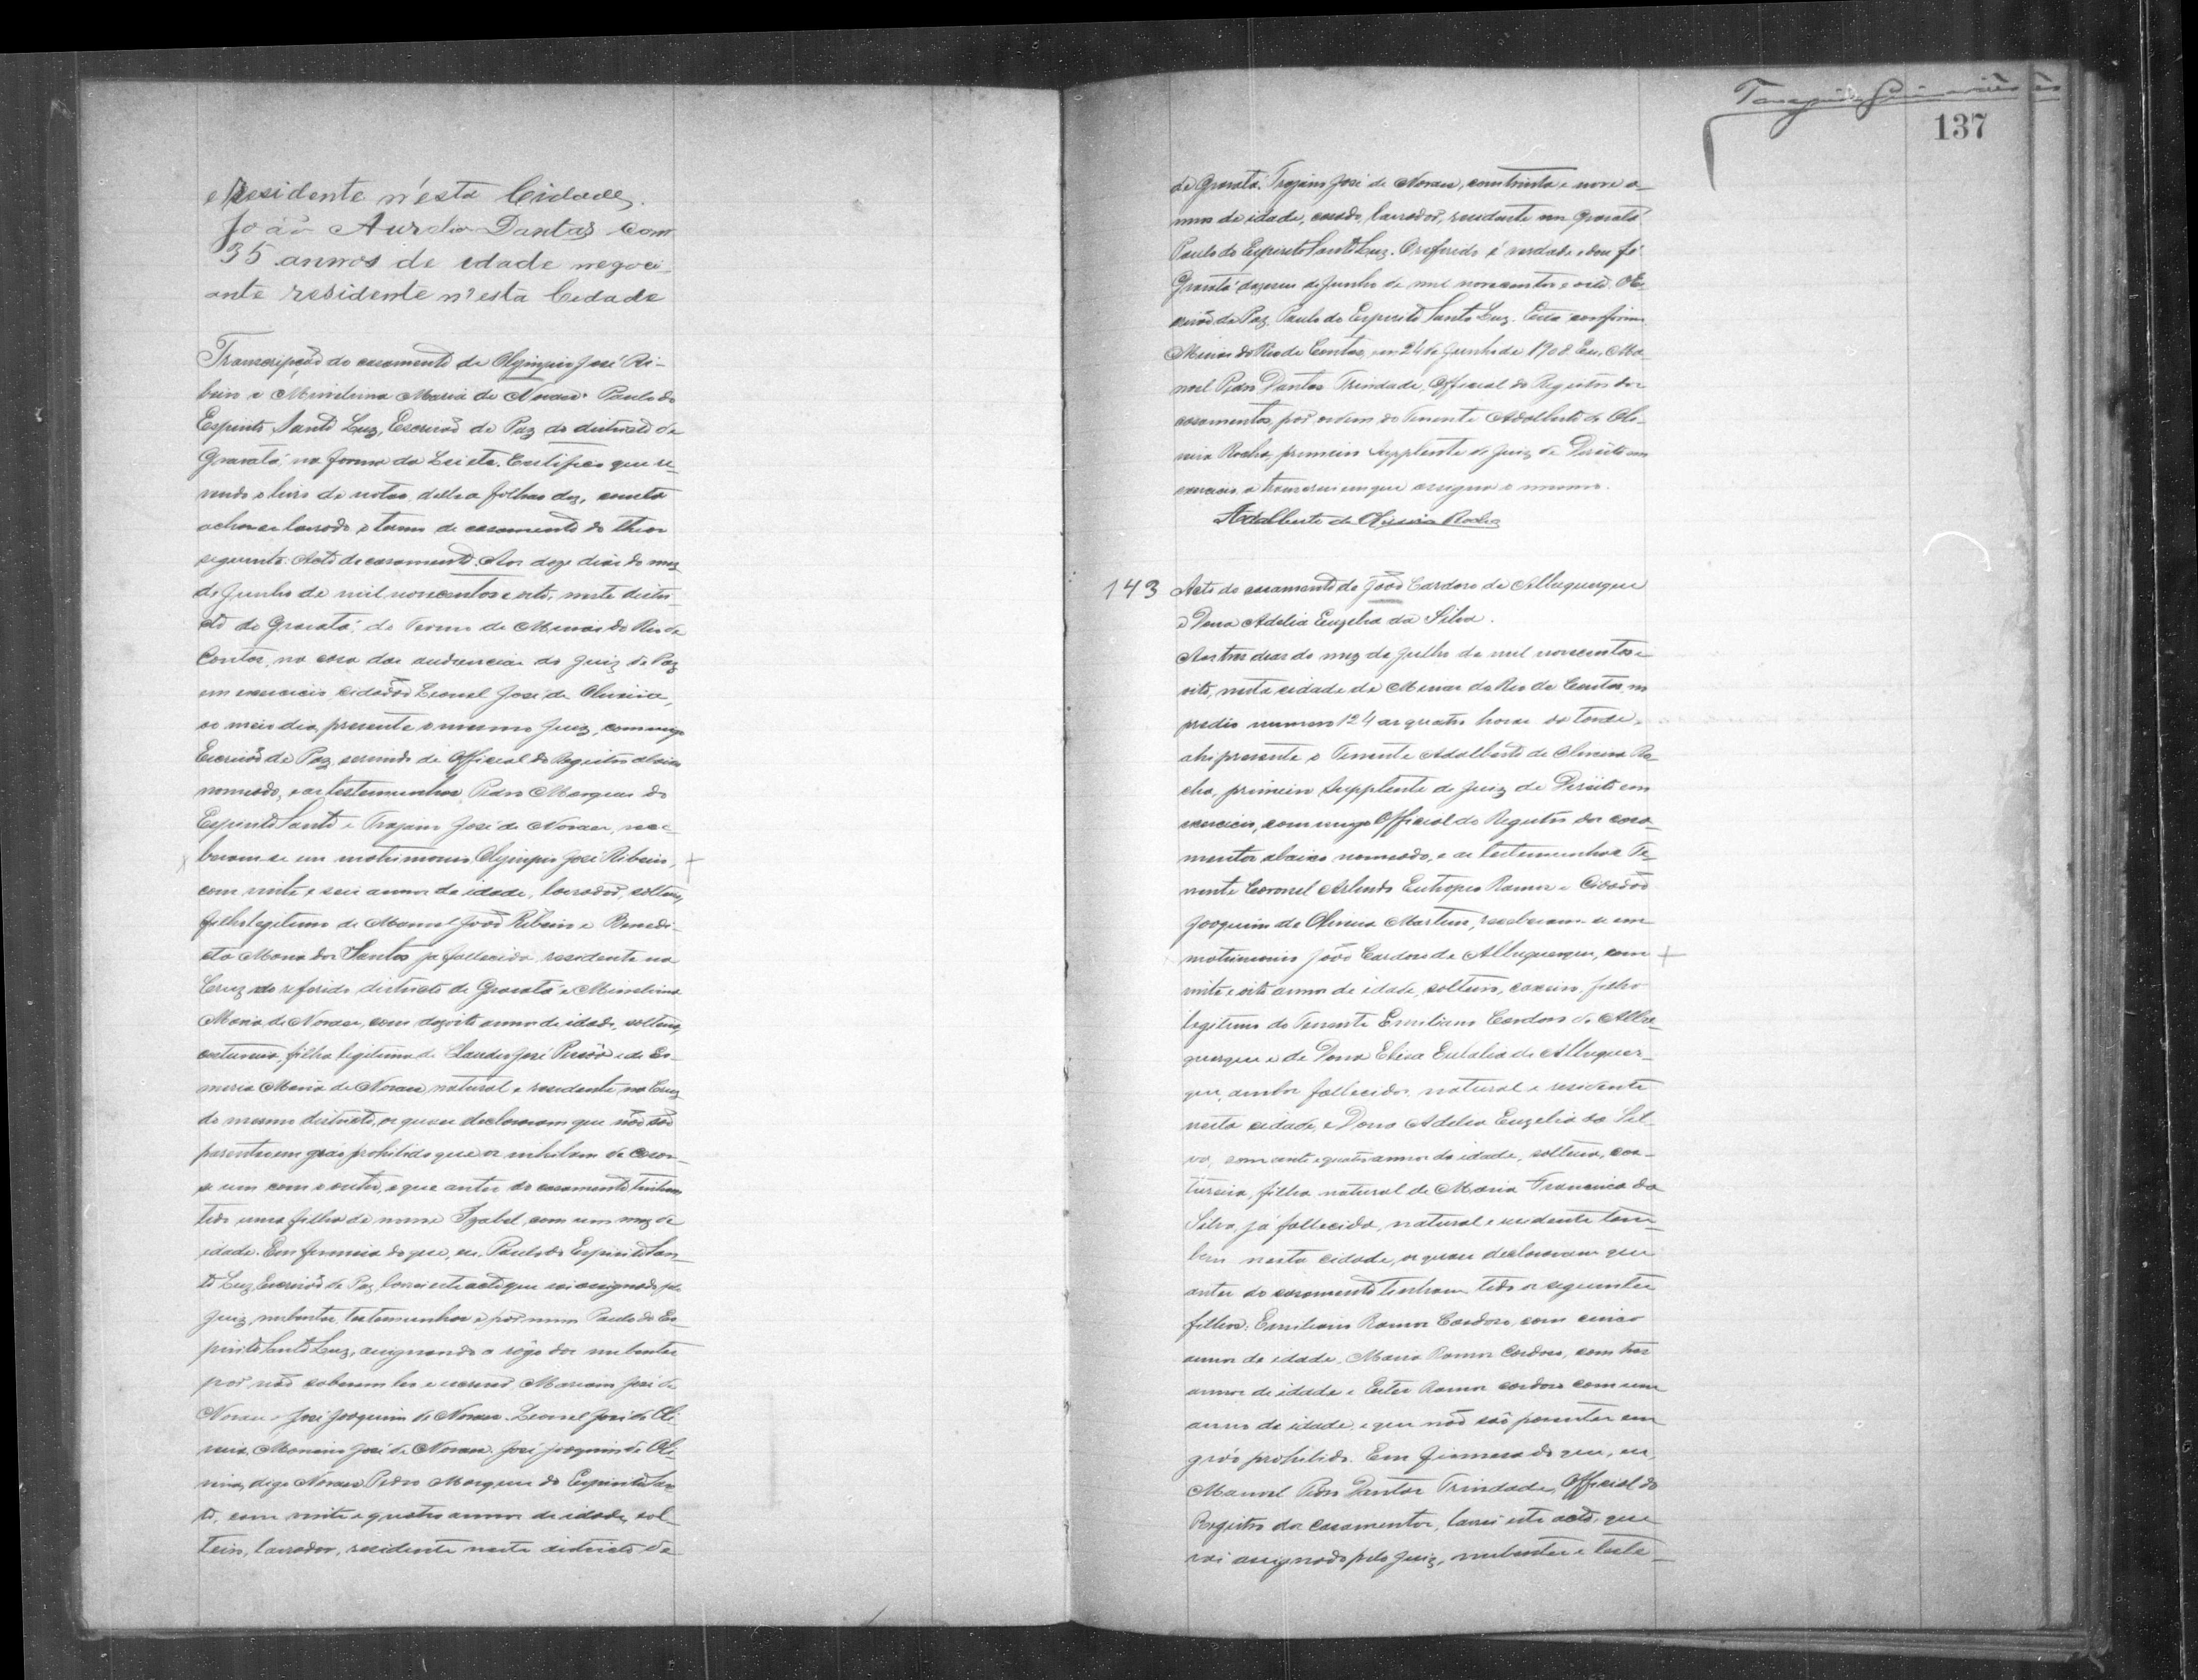 e Residente n'esta Cidade,
João Aurelio Dantas com
35 annos de idade negoci-
ante residente n'esta Cidade
Transcripção do casamento de Olympio José Ri-
beiro e Minelvina Maria de Novaes. Paulo do
Espirito Santo Luz, Escrivão de Paz do districto de
Gravatá, na forma da Lei etc. Certifico que re-
vendo o livro de notas, delle a folhas dez, consta
achar-se lavrado o termo de casamento do theor
seguinte: Acto de casamento. Aos doze dias do mez
de Junho de mil novecentos e oito, neste distri-
cto de Gravatá, do Termo de Minas do Rio de
Contas, na casa das audiencias do Juiz de Paz
em exercicio, cidadão Leonel José de Oliveira,
ao meio dia, presente o mesmo Juiz, commigo
Escrivão de Paz, servindo de Official do Registro abaixo
nomeado, e as testemunhas Pedro Marques do
Espirito Santo e Trajano José de Novaes, rece-
beram-se em matrimonio Olympio José Ribeiro,
com vinte e seis annos de idade, lavrador, solteiro,
filho legitimo de Manoel João Ribeiro e Benedi-
cta Maria dos Santos já fallecida, residente na
Cruz do referido districto de Gravatá e Minelvina
Maria de Novaes, com dezoito annos de idade, solteira,
costureira, filha legitima de José e de Es-
meria Maria de Novaes, natural e residente na Cruz
do mesmo districto, os quaes declararam que não são
parentes em gráo prohibido que os inhibam de casar-
se um com o outro, e que antes do casamento tinham
tido uma filha de nome Izabel, com um mez de
idade. Em firmeza do que, eu, Paulo do Espirito San-
to Luz, Escrivão de Paz, lavrei este acto que vai assignado pelo
Juiz, nubentes, testemunhas e por mim Paulo do Es-
pirito Santo Luz, assignando a rôgo dos nubentes
por não saberem ler e escrever José de
Novaes e José Joaquim de Novaes. Leonel José de Oli-
veira, José de Novaes. José Joaquim de Oli-
veira, digo Novaes. Pedro Marques do Espirito San-
to, com vinte e quatro annos de idade, sol-
teiro, lavrador, residente neste districto de
137
de Gravatá. Trajano José de Novaes, com trinta e nove a-
nnos de idade, casado, lavrador, residente em Gravatá
Paulo do Espirito Santo Luz. O referido é verdade e dou fé.
Gravatá de Junho de mil novecentos e oito. O Es-
crivão de Paz, Paulo do Espirito Santo Luz. Está conforme.
Minas do Rio de Contas, em 24 de Junho de 1908. Eu, Ma-
noel Pedro Dantas Trindade, Official do Registro dos
casamentos, por ordem do Tenente Adalberto de Oli-
veira Rocha, primeiro Supplente do Juiz de Direito em
exercicio, a transcrevi em que assigna o mesmo.
Adalberto de Oliveira Rocha
143 Acto do casamento de João Cardoso de Albuquerque
e Dona Adelia Euzelia da Silva.
Aos tres dias do mez de Julho de mil novecentos e
oito, nesta cidade de Minas do Rio de Contas, no
predio numero 124 as quatro horas da tarde,
ahi presente o Tenente Adalberto de Oliveira Ro-
cha, primeiro Supplente do Juiz de Direito em
exercicio, commigo Official do Registro dos casa-
mentos abaixo nomeado, e as testemunhas Te-
nente Coronel Arlindo Eutropio Ramos e Cidadão
Joaquim de Oliveira Martins, receberam-se em
matrimonio João Cardoso de Albuquerque, com
vinte e oito annos de idade, solteiro, caxeiro, filho
legitimo do Tenente Emiliano Cardoso de Albu-
querque e de Dona Elisa Eulalia de Albuquer-
que, ambos fallecidos, natural e residente
nesta cidade, e Dona Adelia Euzelia da Sil-
va, com vinte e quatro annos de idade, solteira, cos-
tureira, filha natural de Maria Francisca da
Silva, já fallecida, natural e residente tam-
bem nesta cidade, os quaes declararam que
antes do casamento tinham tido os seguintes
filhos: Emiliano Ramos Cardoso, com cinco
annos de idade, Maria Ramos Cardoso, com tres
annos de idade e Ester Ramos Cardoso com um
anno de idade, e que não são parentes em
gráo prohibido. Em firmeza do que, eu,
Manoel Pedro Dantas Trindade, Official do
Registro dos casamentos, lavrei este acto, que
vai assignado pelo Juiz, nubentes e teste-